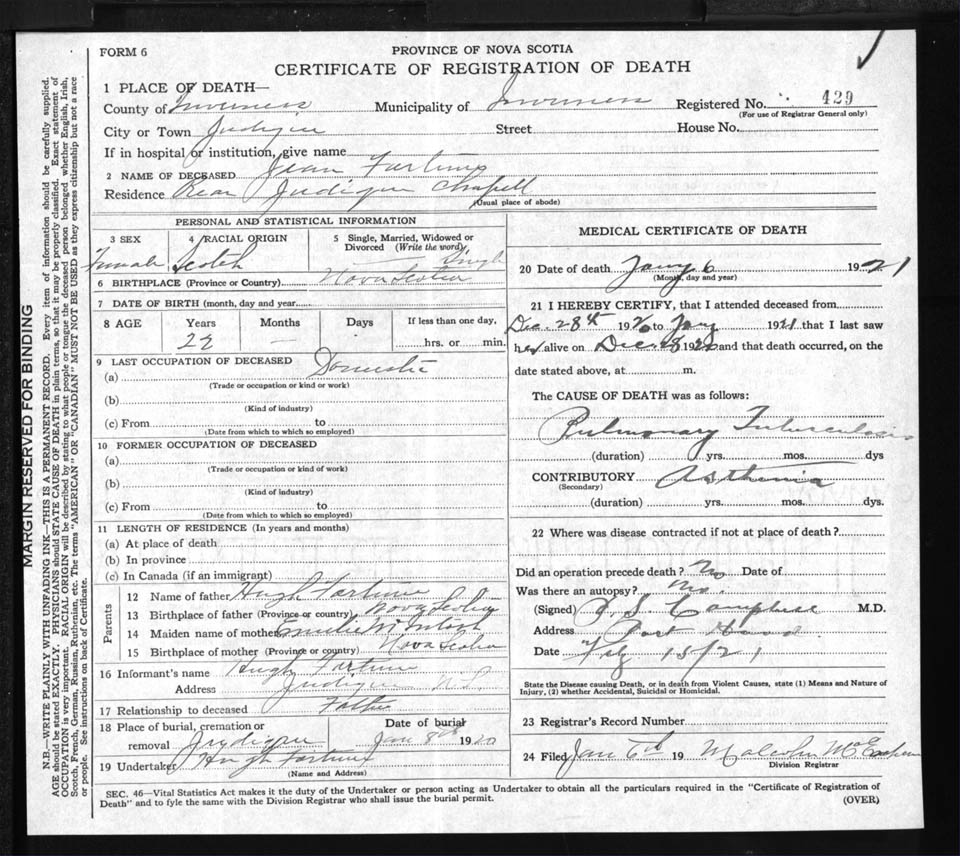 FORM 6
PROVINCE OF NOVA SCOTIA
CERTIFICATE OF REGISTRATION OF DEATH
1 PLACE OF DEATH—
County of Inverness Municipality of Inverness Registered No. 429
(For use of Registrar General only)
City or Town Judique Street House No.
If in hospital or institution, give name
2 NAME OF DECEASED Jean Fortune
Residence Rear Judique Chapell
(Usual place of abode)
PERSONAL AND STATISTICAL INFORMATION
3 SEX 4 RACIAL ORIGIN 5 Single, Married, Widowed or Divorced (Write the word)
Female Scotch Single
6 BIRTHPLACE (Province or Country) Nova Scotia
7 DATE OF BIRTH (month, day and year)
8 AGE Years Months Days If less than one day,
hrs. or min.
9 LAST OCCUPATION OF DECEASED
(a) Domestic
(Trade or occupation or kind or work)
(b)
(Kind of industry)
(c) From to
(Date from which to which so employed)
10 FORMER OCCUPATION OF DECEASED
(a)
(Trade or occupation or kind of work)
(b)
(Kind of industry)
(c) From to
(Date from which to which so employed)
11 LENGTH OF RESIDENCE (In years and months)
(a) At place of death
(b) In province
(c) In Canada (if an immigrant)
Parents
12 Name of father Hugh Fortune
13 Birthplace of father (Province or country) Nova Scotia
14 Maiden name of mother McIntosh
15 Birthplace of mother (Province or country) Nova Scotia
16 Informant's name Hugh Fortune
Address Judique N.S.
17 Relationship to deceased Father
18 Place of burial, cremation or Date of burial
removal Judique Jan 8th 1920
19 Undertaker Hugh Fortune
(Name and Address)
MEDICAL CERTIFICATE OF DEATH
20 Date of death Jany 6 1921
(Month, day and year)
21 I HEREBY CERTIFY, that I attended deceased from
Dec. 28th 1920 to Jany 1921 that I last saw
her alive on Dec. 28 1920 and that death occurred, on the
date stated above, at m.
The CAUSE OF DEATH was as follows:
Pulmonary Tuberculosis
(duration) yrs. mos. dys
CONTRIBUTORY Asthenia
(Secondary)
(duration) yrs. mos. dys.
22 Where was disease contracted if not at place of death?
Did an operation precede death? No Date of
Was there an autopsy? No.
(Signed) Campbell M.D.
Address Port Hood
Date Feby 15/21
State the Disease causing Death, or in death from Violent Causes, state (1) Means and Nature of
Injury, (2) whether Accidental, Suicidal or Homicidal.
23 Registrar's Record Number
24 Filed Jan 6th 19 Malcolm
Division Registrar
SEC. 46—Vital Statistics Act makes it the duty of the Undertaker or person acting as Undertaker to obtain all the particulars required in the "Certificate of Registration of
Death" and to fyle the same with the Division Registrar who shall issue the burial permit.
(OVER)
MARGIN RESERVED FOR BINDING
N.B.—WRITE PLAINLY WITH UNFADING INK—THIS IS A PERMANENT RECORD. Every item of information should be carefully supplied.
AGE should be stated EXACTLY. PHYSICIANS should STATE CAUSE OF DEATH in plain terms, so that it may be properly classified. Exact statement of
OCCUPATION is very important. RACIAL ORIGIN will be described by stating to what people or tongue the deceased person belonged whether English, Irish,
Scotch, French, German, Russian, Ruthenian, etc. The terms "AMERICAN" OR "CANADIAN" MUST NOT BE USED as they express citizenship but not a race
or people. See instructions on back of Certificate.